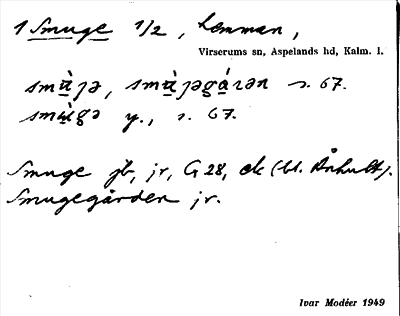 1 Smuge 1/2, hemman,
Virserums sn, Aspelands hd, Kalm. l.
smɯ̀ȷə, smɯ̀ȷəgárən s. 67.
smɯ̀gə y., s. 67.
Smuge jb, jr, G 28, ek (bl. Århult).
Smugegården jr.
Ivar Modéer 1949